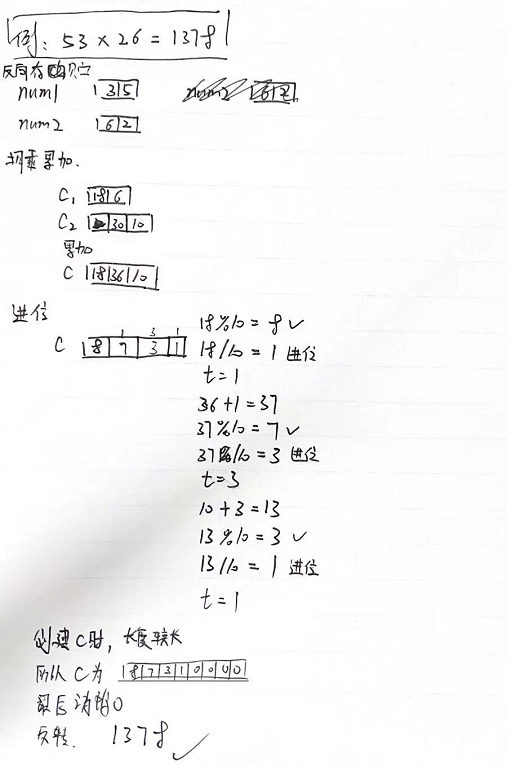 例: 53 × 26 = 1378
反向存储
num1 |3|5|
num2 |6|2|
相乘累加.
C₁ |18|6|
C₂ | |30|10|
累加
C |18|36|10|
进位
1 3 1
C |8|7|3|1|
18%10 = 8 ✓
18/10 = 1 进位
t=1
36+1=37
37%10 = 7 ✓
37/10 = 3 进位
t=3
10+3=13
13%10 = 3 ✓
13/10 = 1 进位
t=1
创建C时, 长度较长
所以 C为 |8|7|3|1|0|0|0|0|
最后 消除0
反转. 1378 ✓